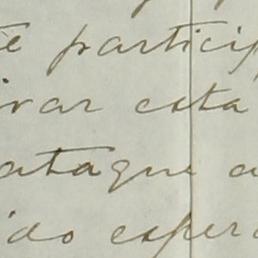 é particip
ivar esta
ataque a
ido espera